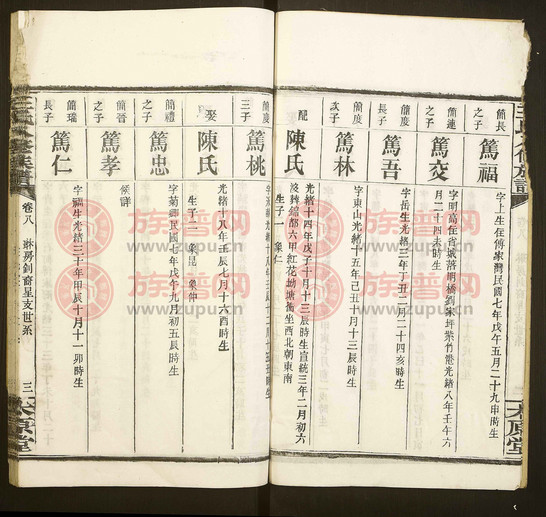 簡長
之子
篤福
字上生住傅家灣民國七年戊午五月二十九申時生
簡連
之子
篤交
字明高住省城落明橋劉家坪紫竹巷光緒八年壬午六
月二十四未時生
簡度
長子
篤吾
字岳生光緒三年丁丑二月二十四亥時生
次子
篤林
字東山光緒十五年己丑十月十三辰時生
配
陳氏
光緒十四年戊子十月十三辰時生宣統三年二月初六
歿葬錦都六甲紅花坳塘舊坐西北朝東南
生子一 象仁
簡度
三子
篤桃
娶
陳氏
光緒十八年壬辰七月十六酉時生
生子二 象昆 象仲
簡禮
之子
篤忠
字菊卿民國七年戊午九月初五辰時生
簡晉
之子
篤孝
候詳
簡瑞
長子
篤仁
字福生光緒三十年甲辰十月十一卯時生
卷八
三
太原堂
太原堂
族譜网
www.zupu.cn
族譜网
www.zupu.cn